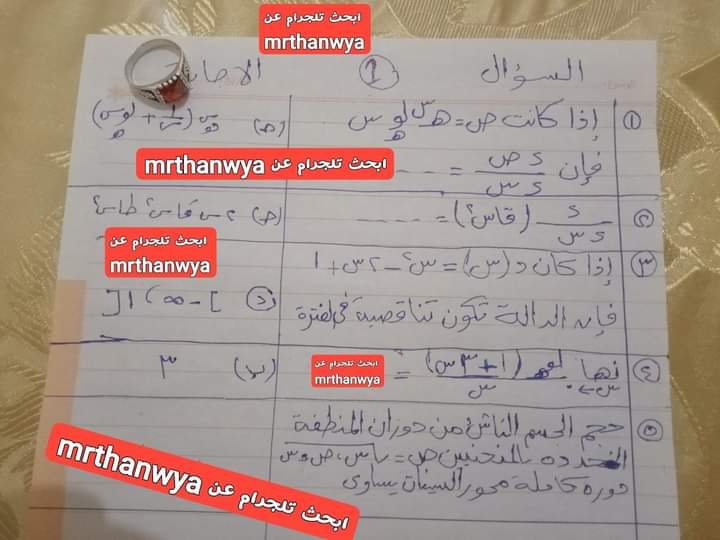 ابحث تلجرام عن
mrthanwya
السؤال
1
الاجابة
١ إذا كانت ص = هـ^س لو_هـ س
(ح) هـ^س (١/س + لو_هـ س)
فإن ء ص / ء س = ----
ابحث تلجرام عن mrthanwya
٢ ء / ء س (قا س٢) = ----
(ح) ٢ س قا س٢ طا س٢
ابحث تلجرام عن
mrthanwya
٣ إذا كان د(س) = س٢ - ٢س + ١
فإن الدالة تكون تناقصية في الفترة
(د) ]-∞ ، ١[
٤ نهـا س←٠ لو_هـ (١+٣س) / س =
ابحث تلجرام عن
mrthanwya
(ب) ٣
٥ حجم الجسم الناشئ من دوران المنطقة
المحدده بالمنحنيين ص =
دورة كاملة محور السينات يساوى
ابحث تلجرام عن mrthanwya